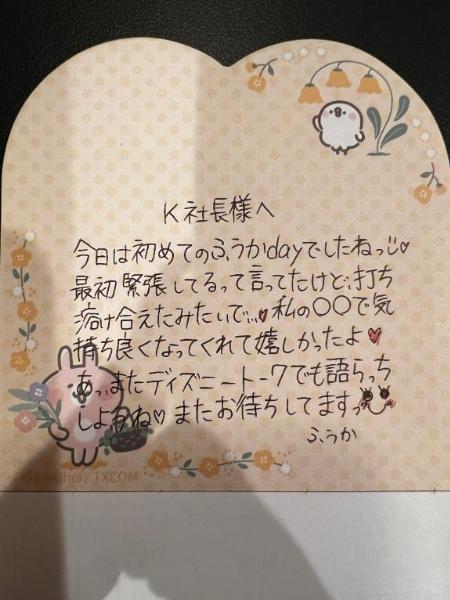 K社長様へ
今日は初めてのふうかdayでしたねっ♡
最初緊張してるって言ってたけど、打ち
溶け合えたみたいで…♥私の〇〇で気
持ち良くなってくれて嬉しかったよ♥
あっ、またディズニートークでも語らっち
しよーね♡またお待ちしてますっ
ふうか
©kanahei/TXCOM